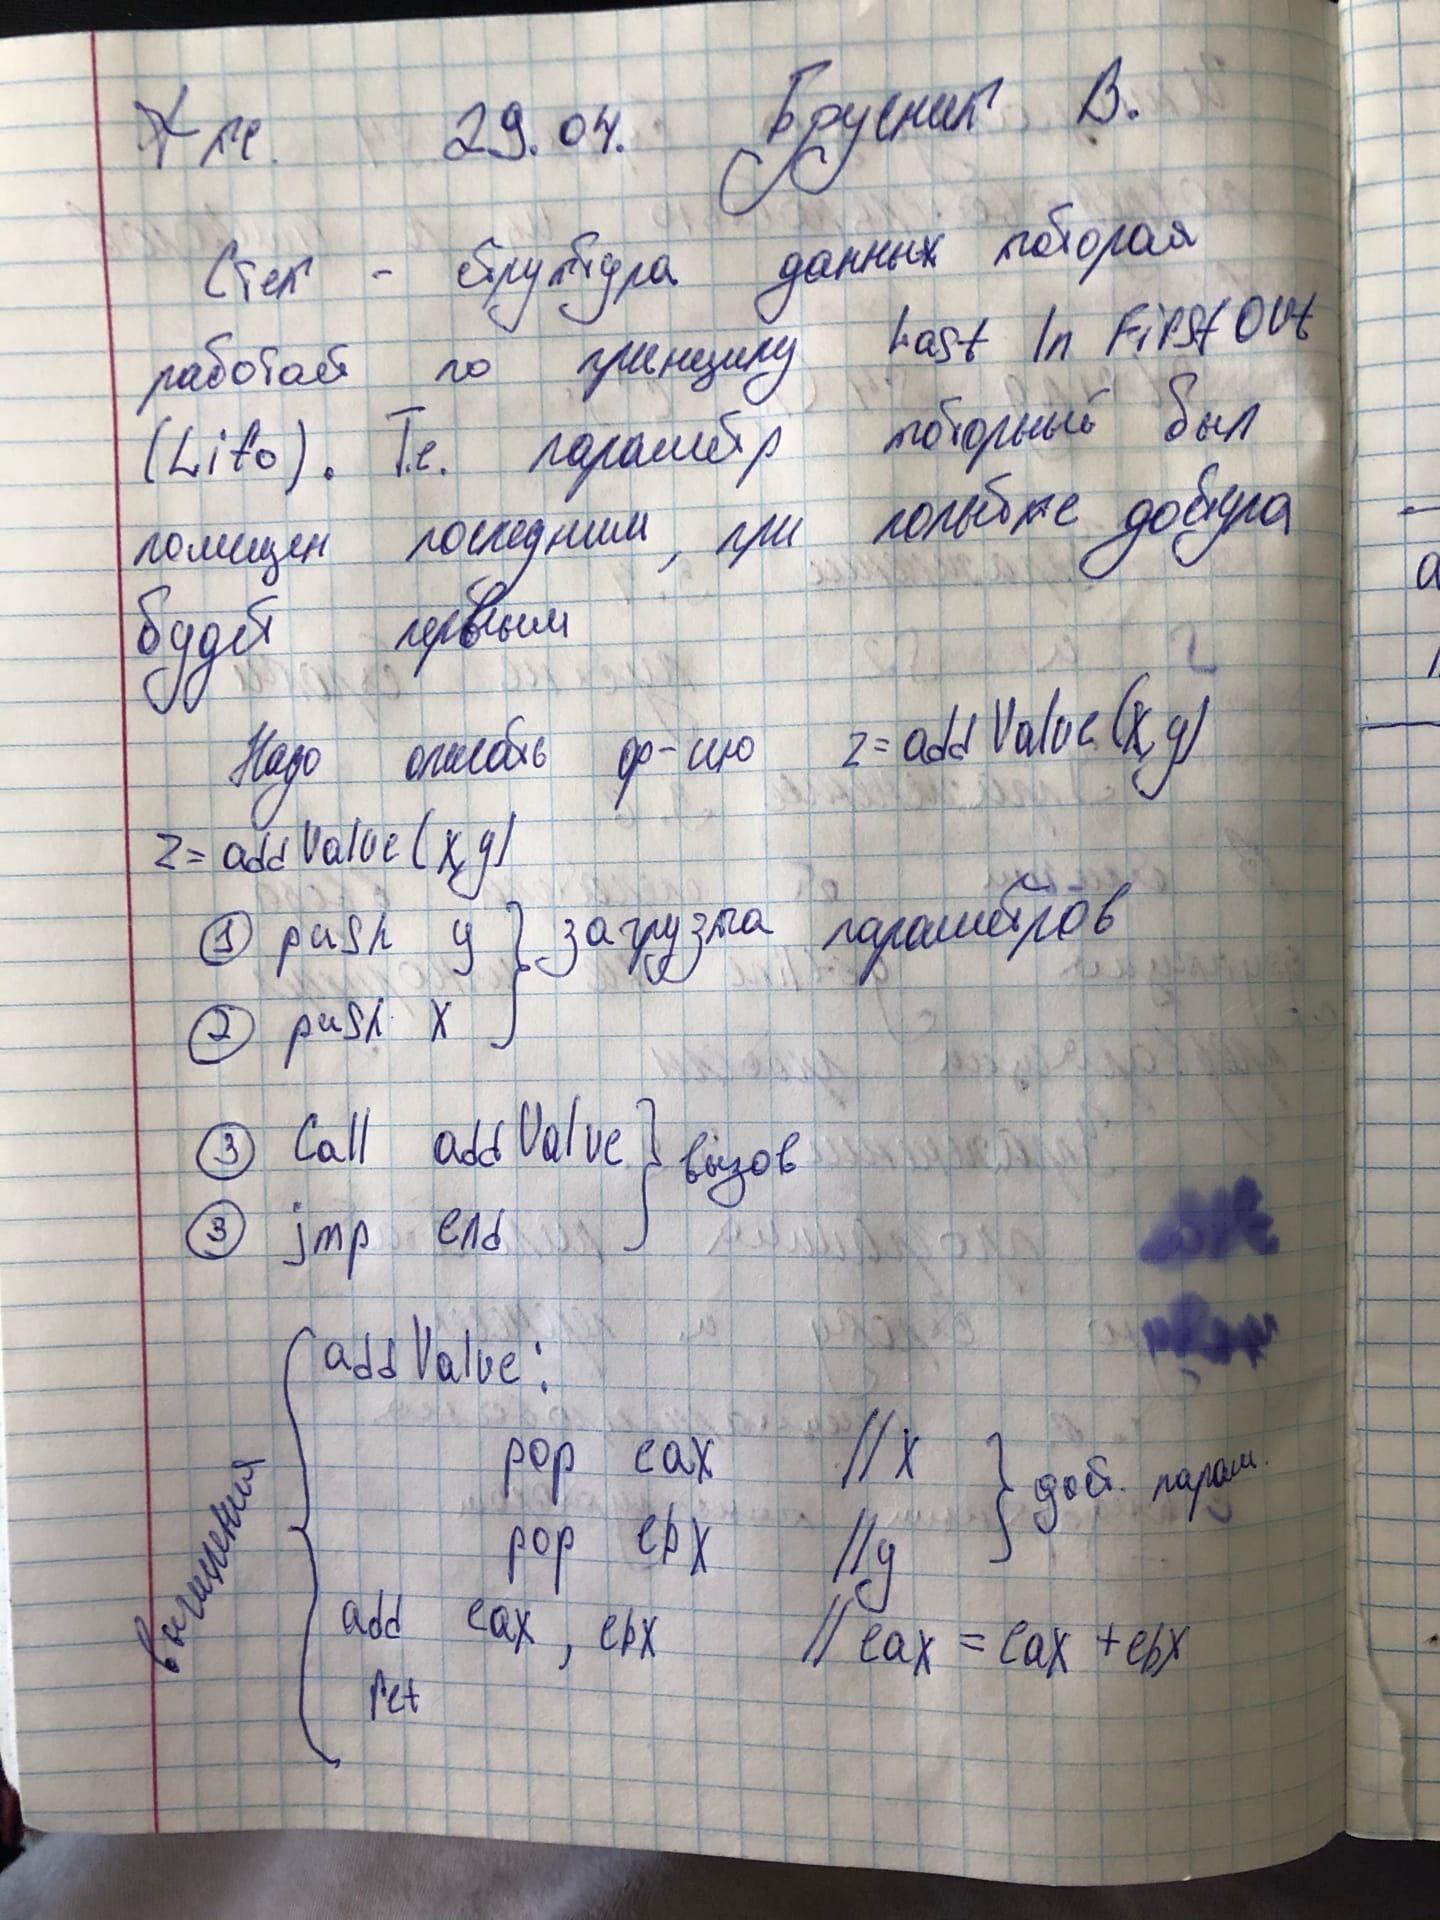 29.04. Брусник В.
Стек - структура данных которая
работает по принципу Last In First Out
(Lifo). Т.е. параметр который был
помещен последним, при попытке доступа
будет первым
Надо описать ф-цию z=addValue(x,y)
z=addValue(x,y)
① push y } загрузка параметров
② push x
③ Call addValue } вызов
③ jmp end
addValue:
pop eax //x } дост. парам.
pop ebx //y
add eax, ebx //eax = eax + ebx
ret
вычисления